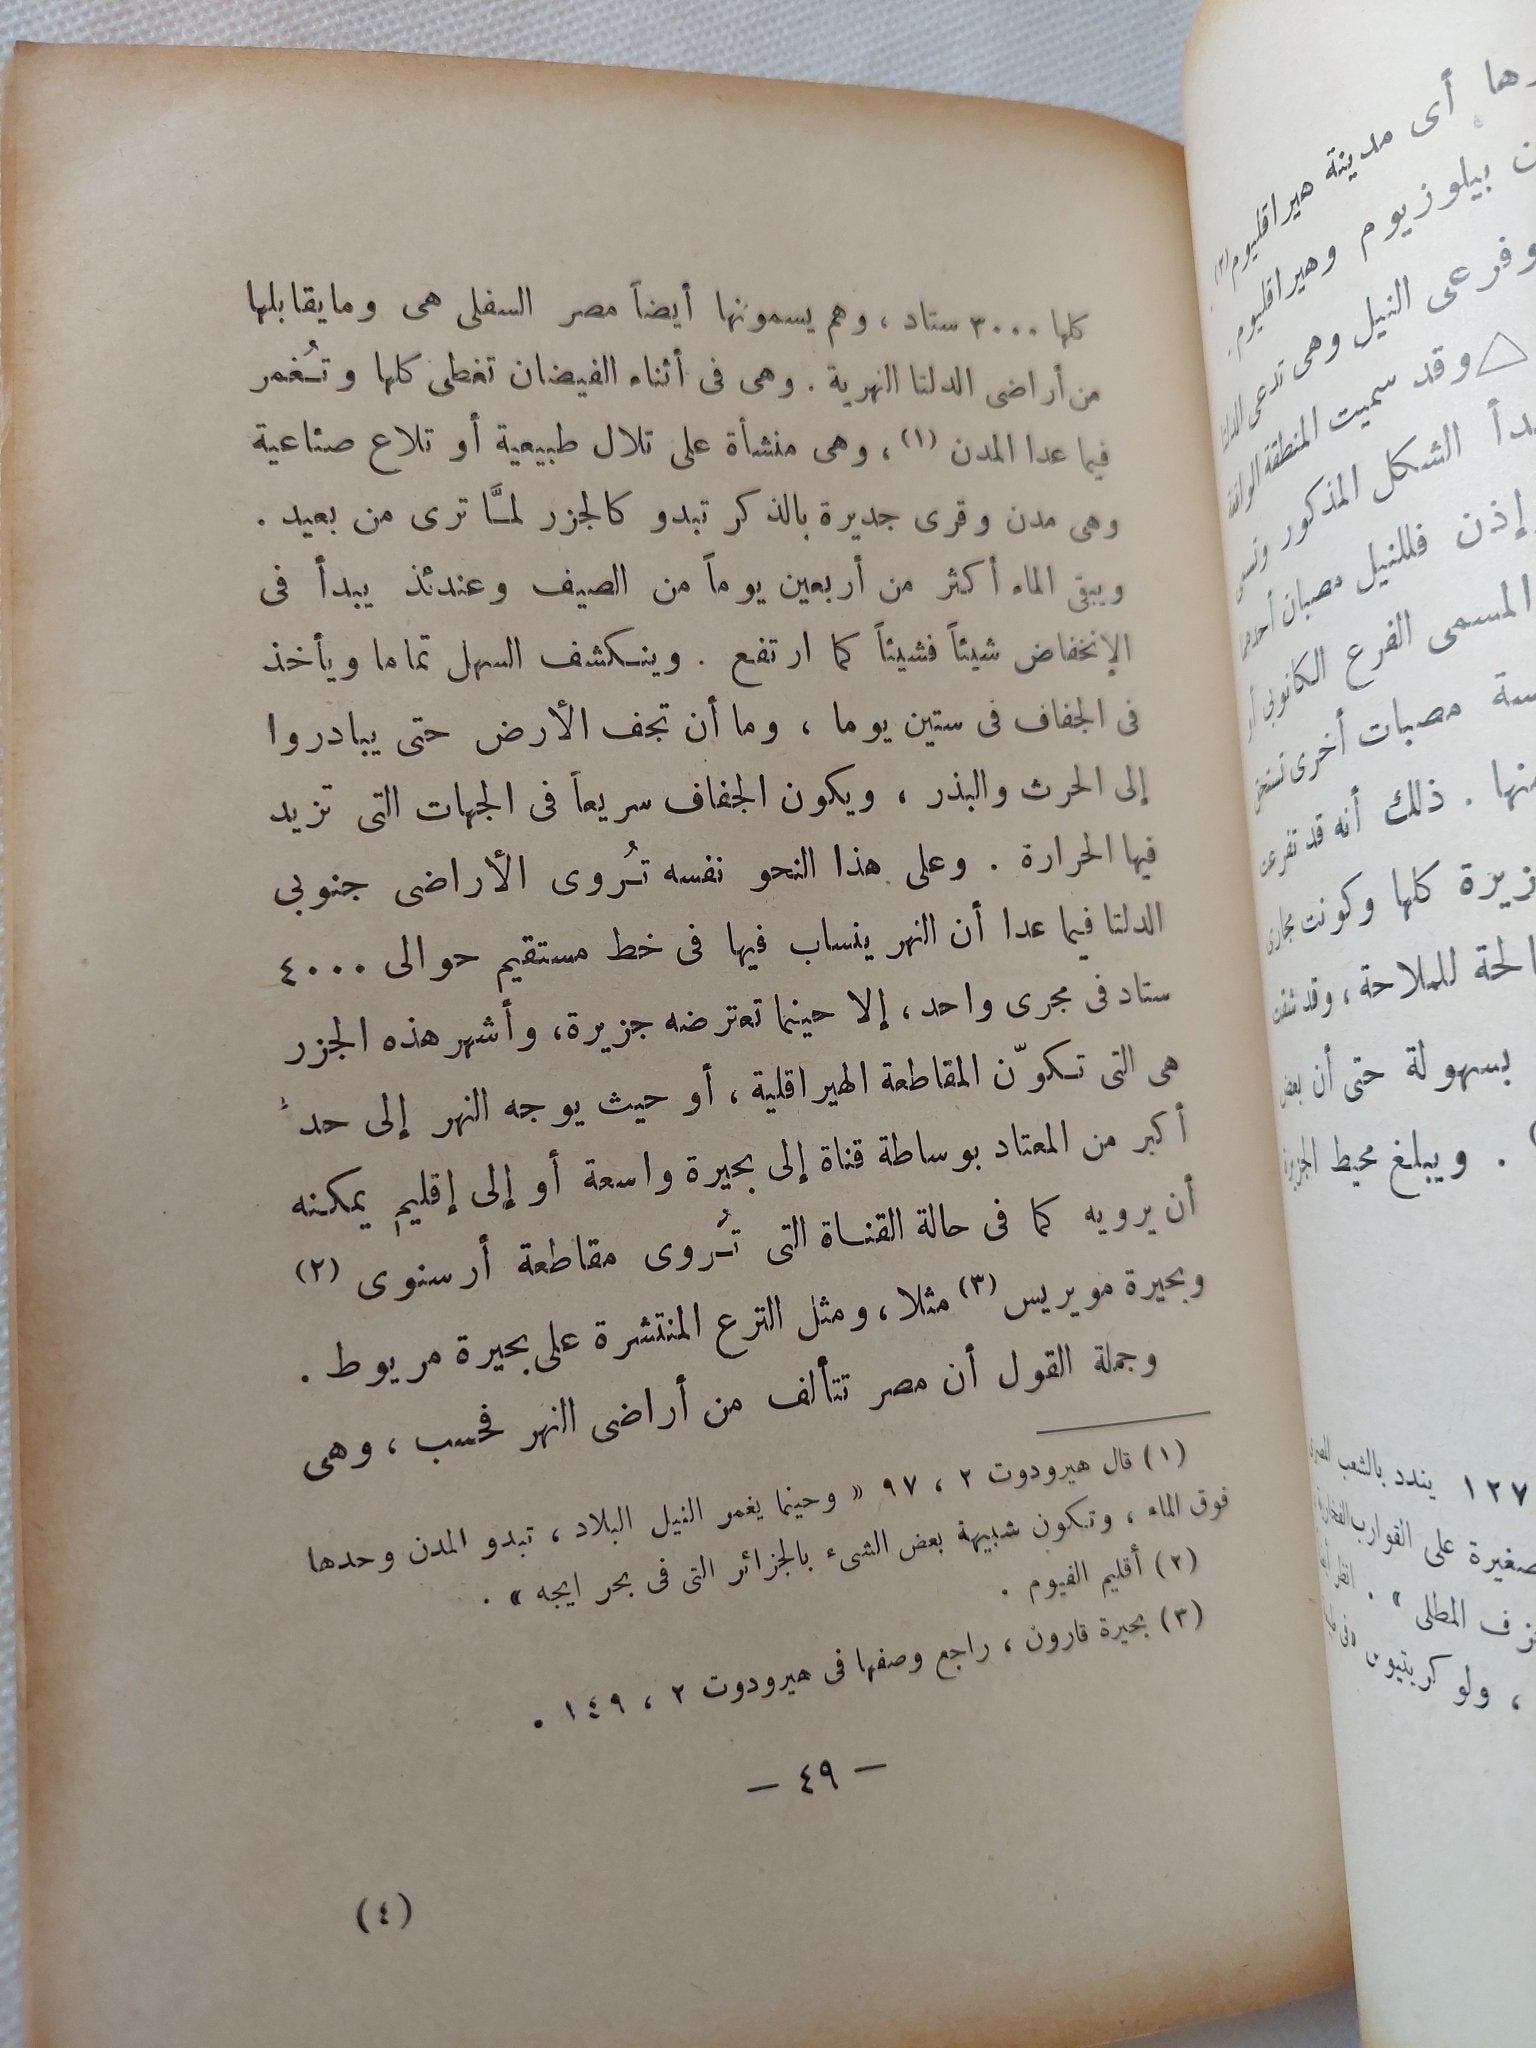 كلها ٣٠٠٠ ستاد ، وهم يسمونها أيضاً مصر السفلى هى وما يقابلها
من أراضى الدلتا النهرية . وهى فى أثناء الفيضان تغطى كلها وتـُغمر
فيما عدا المدن (١) ، وهى منشأة على تلال طبيعية أو تلاع صناعية
وهى مدن وقرى جديرة بالذكر تبدو كالجزر لمـَّا ترى من بعيد .
ويبقى الماء أكثر من أربعين يوماً من الصيف وعندئذ يبدأ فى
الإنخفاض شيئاً فشيئاً كما ارتفع . وينـكشف السهل تماما ويأخذ
فى الجفاف فى ستين يوما ، وما أن تجف الأرض حتى يبادروا
إلى الحرث والبذر ، ويكون الجفاف سريعاً فى الجهات التى تزيد
فيها الحرارة . وعلى هذا النحو نفسه تـُروى الأراضى جنوبى
الدلتا فيما عدا أن النهر ينساب فيها فى خط مستقيم حوالى ٤٠٠٠
ستاد فى مجرى واحد ، إلا حينما تعترضه جزيرة ، وأشهر هذه الجزر
هى التى تـكوّن المقاطعة الهيراقلية ، أو حيث يوجه النهر إلى حد
أكبر من المعتاد بوساطة قناة إلى بحيرة واسعة أو إلى إقليم يمكنه
أن يرويه كما فى حالة القنـاة التى تـُروى مقاطعة أرسنوى (٢)
وبحيرة مويريس (٣) مثلا ، ومثل الترع المنتشرة على بحيرة مريوط .
وجملة القول أن مصر تتألف من أراضى النهر فحسب ، وهى
(١) قال هيرودوت ٢ ، ٩٧ « وحينما يغمر النيل البلاد ، تبدو المدن وحدها
فوق الماء ، وتكون شبيهة بعض الشىء بالجزائر التى فى بحر ايجه » .
(٢) أقليم الفيوم .
(٣) بحيرة قارون ، راجع وصفها فى هيرودوت ٢ ، ١٤٩ .
— ٤٩ —
(٤)
أى مدينة هيراقليوم (٢)
بيلوزيوم وهيراقليوم .
وفرعى النيل وهى تدعى الدلتا
△ وقد سميت المنطقة الواقعة
الشكل المذكور وتسمى
إذن فللنيل مصبان أحدهما
المسمى الفرع الكانوبى أو
مصبات أخرى تستحق
ذلك أنه قد تفرعت
كلها وكونت مجارى
للملاحة ، وقد شقت
بسهولة حتى أن بعض
. ويبلغ محيط الجزيرة
١٢٧ يندد بالشعب المصرى
على القوارب الفخارية
المطلى » . انظر
، ولوكريتيوس